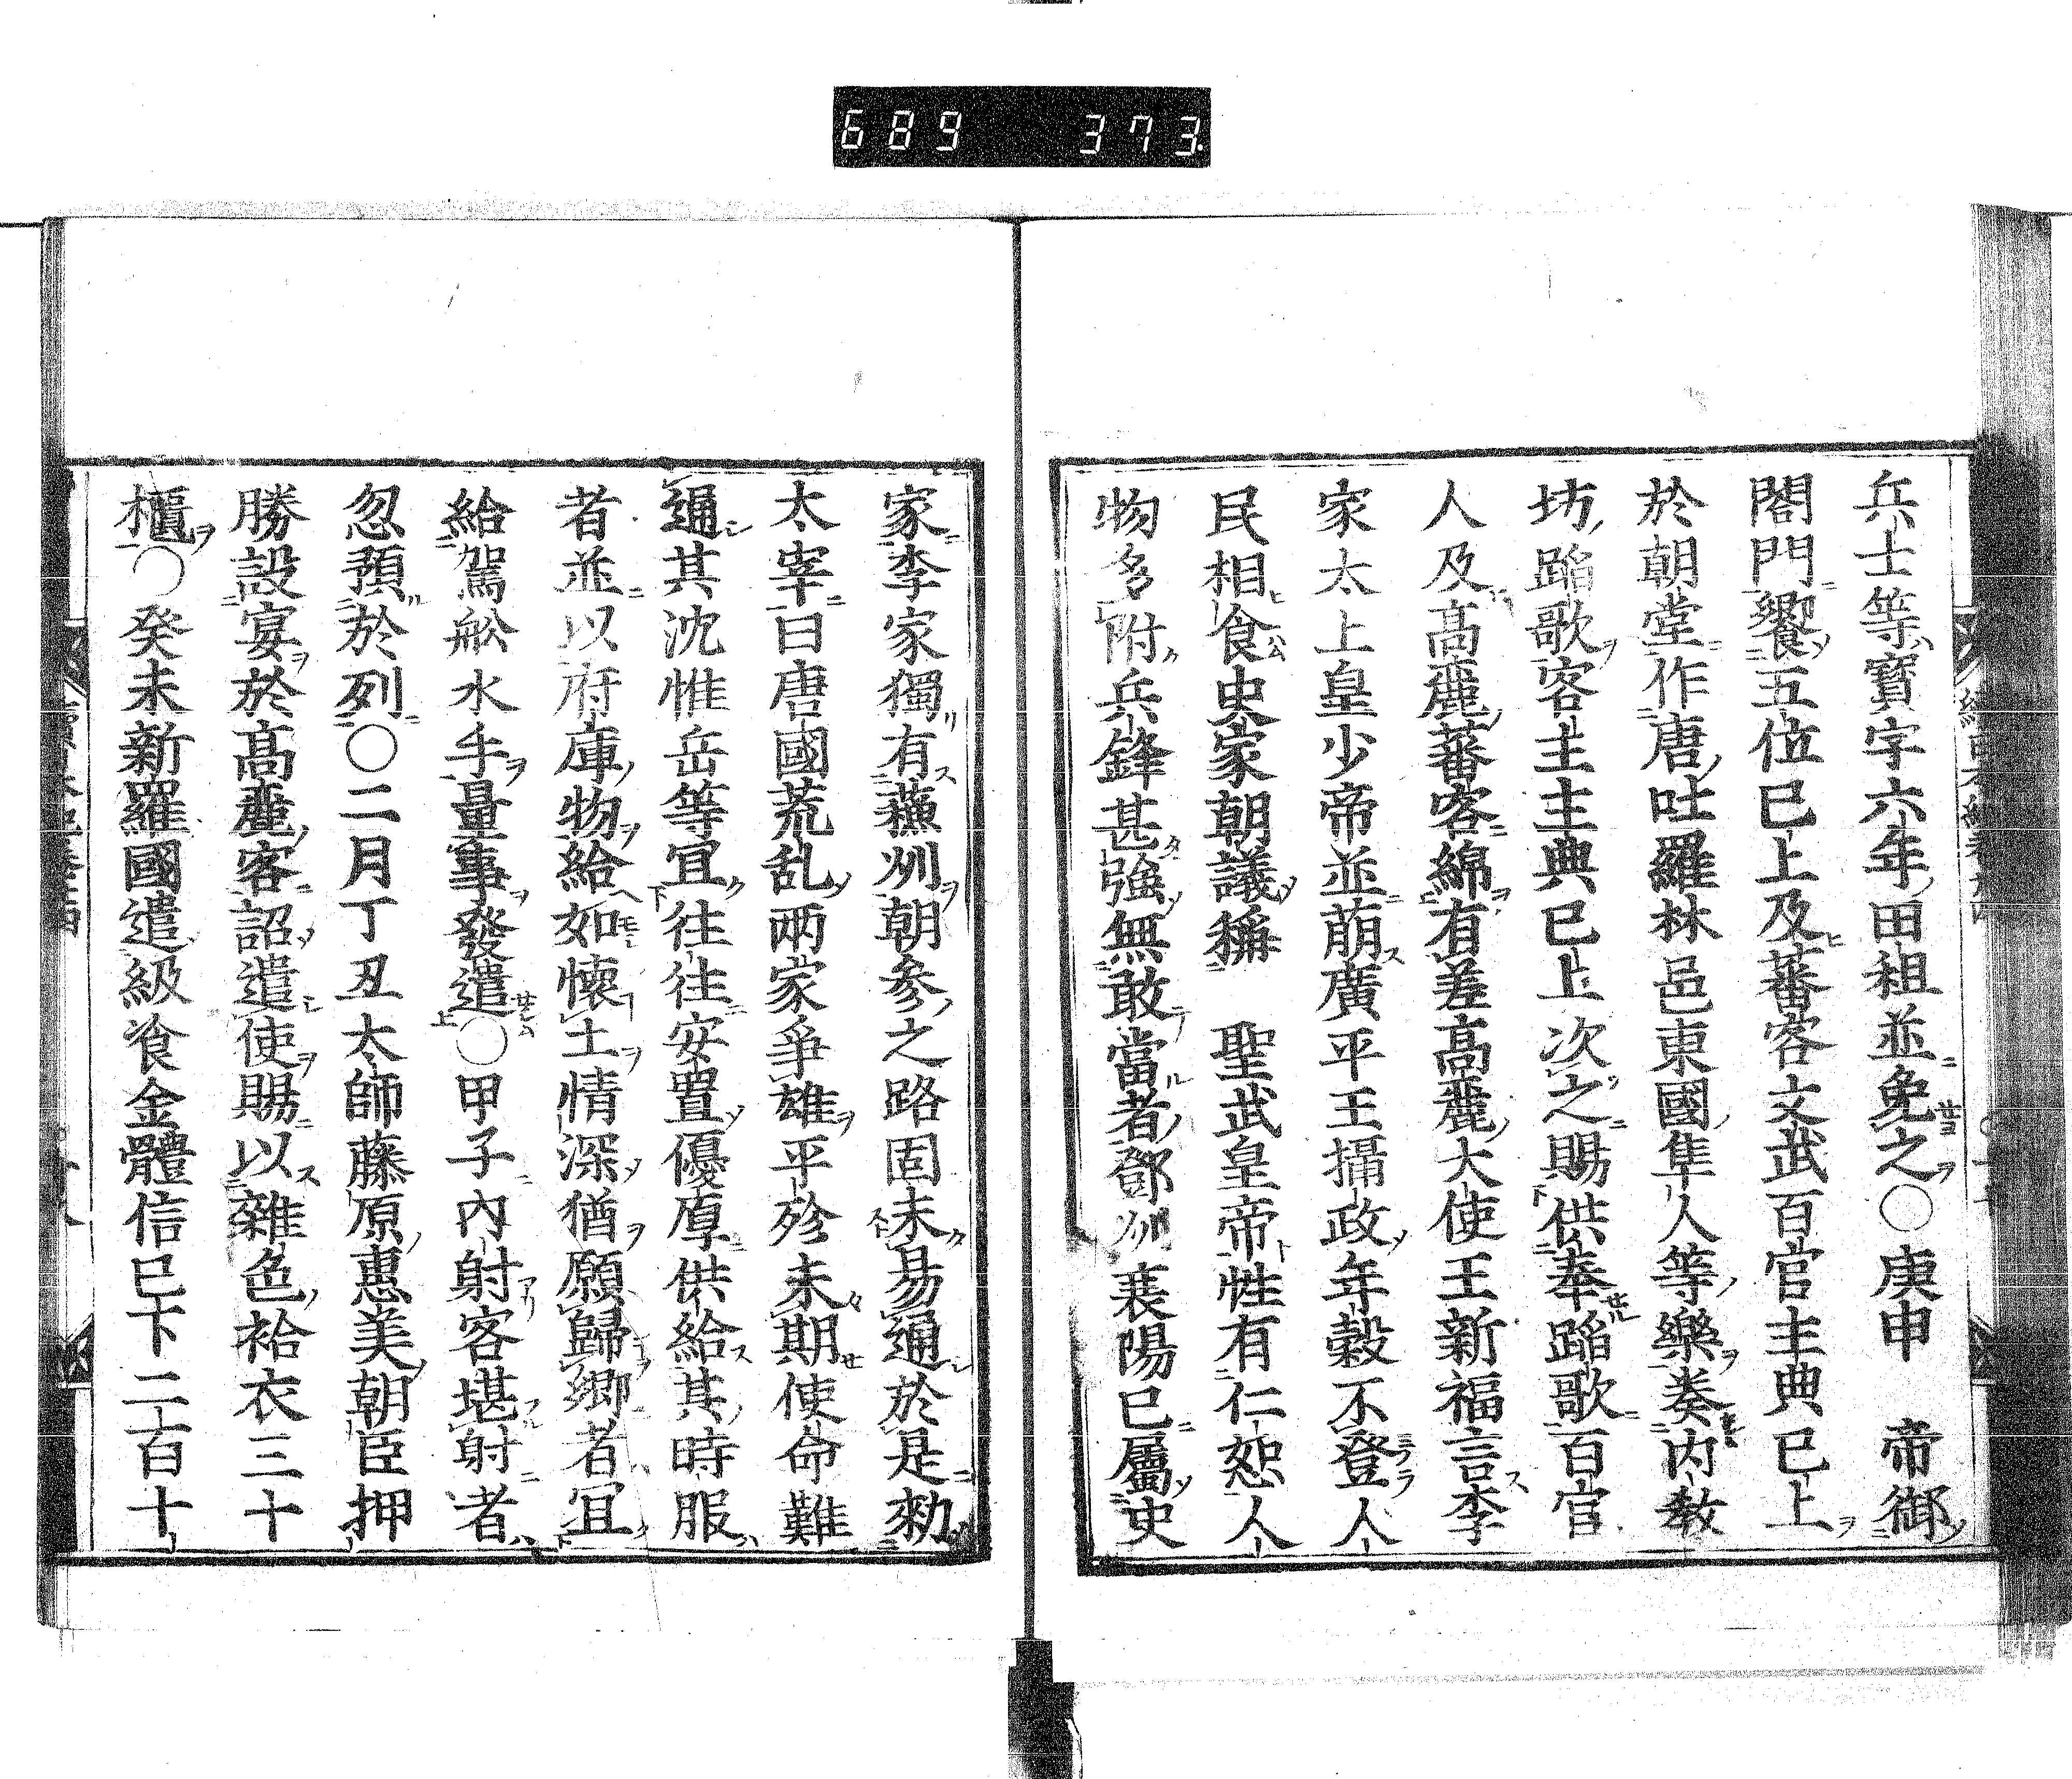 689 373.
兵士等寶字六年田租並免之○庚申 帝御
閤門饗五位已上及蕃客文武百官主典已上
於朝堂作唐吐羅林邑東國隼人等樂奏内教
坊蹈歌客主主典已上次之賜供奉蹈歌百官
人及髙麗蕃客綿有差髙麗大使王新福言李
家太上皇少帝並崩廣平王攝政年穀不登人
民相食史家朝議稱 聖武皇帝性有仁恕人
物多附兵鋒甚強無敢當者鄧州襄陽已屬史
家李家獨有蘓州朝參之路固未易通於是勑
太宰曰唐國荒乱兩家爭雄平殄未期使命難
通其沈惟岳等宜往往安置優厚供給其時服
者並以府庫物給如懷土情深猶願歸郷者宜
給駕舩水手量事發遣○甲子內射客堪射者
忽預於列○二月丁丑太師藤原惠美朝臣押
勝設宴於髙麗客詔遣使賜以雜色袷衣三十
櫃○癸未新羅國遣級飡金體信已下二百十